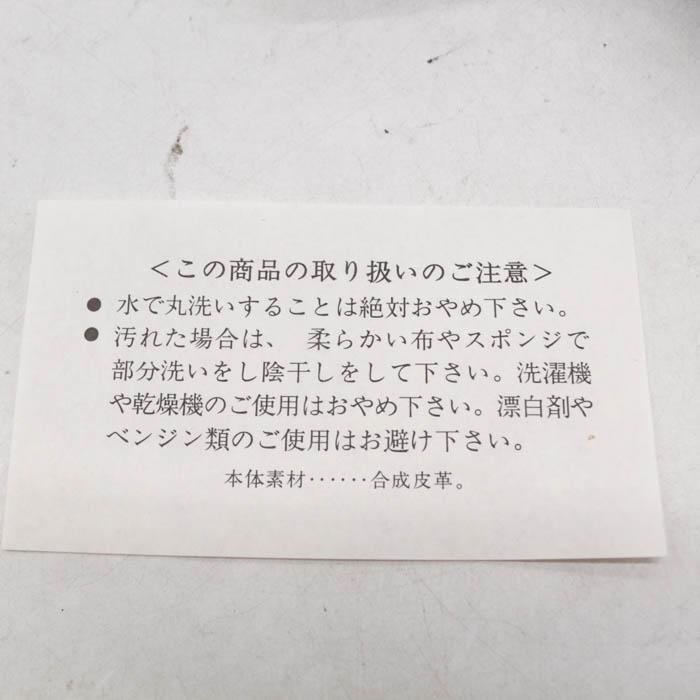 <この商品の取り扱いのご注意>
● 水で丸洗いすることは絶対おやめ下さい。
● 汚れた場合は、 柔らかい布やスポンジで
部分洗いをし陰干しをして下さい。洗濯機
や乾燥機のご使用はおやめ下さい。漂白剤や
ベンジン類のご使用はお避け下さい。
本体素材‥‥‥合成皮革。